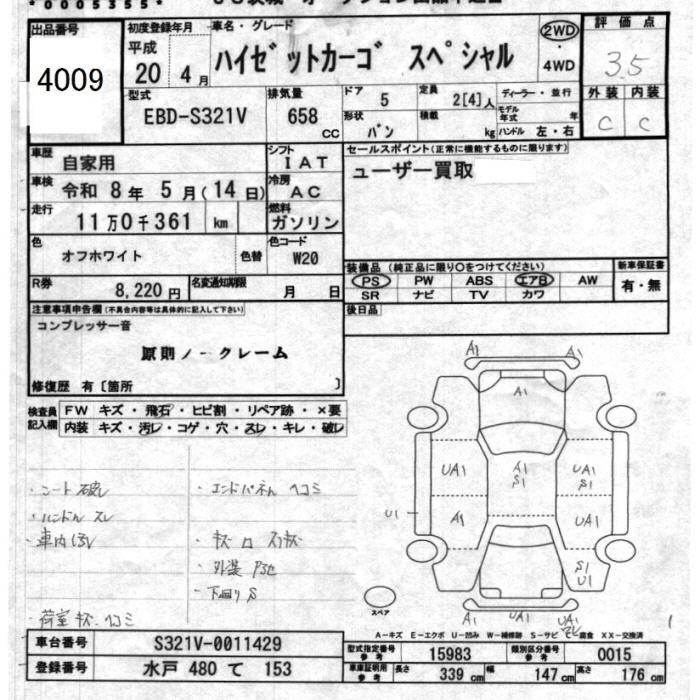 ・0005355・
出品番号
4009
初度登録年月
平成
20 4月
車名・グレード
ハイゼットカーゴ スペシャル
2WD
・
4WD
評価点
3.5
外装 内装
C C
型式
EBD-S321V
排気量
658
CC
ドア
5
定員
2[4]人
ディーラー・並行
形状
バン
積載
kg
モデル
年式
年
ハンドル 左・右
車歴
自家用
シフト
IAT
セールスポイント(正常に機能するものに限ります)
ユーザー買取
車検
令和 8年 5月(14日)
冷房
AC
走行
11万0千361 km
燃料
ガソリン
色
オフホワイト
色替
色コード
W20
装備品 (純正品に限り○をつけてください)
PS PW ABS エアB AW
SR ナビ TV カワ
新車保証書
有・無
R券
8,220円
名変通知期限
月 日
注意事項申告欄(不具合内容等は具体的に記入して下さい)
コンプレッサー音
原則ノークレーム
修復歴 有〔箇所 〕
後日品
検査員
記入欄
FW キズ・飛石・ヒビ割・リペア跡・×要
内装 キズ・汚レ・コゲ・穴・スレ・キレ・破レ
・シート破レ
・ハンドル スレ
・車内汚レ
・荷室キズ・ヘコミ
・エンドパネル ヘコミ
・外装
・下回りS
A1 A1
A1
UA1 A1 S1 UA1
U1 A1 UA1
S1
U1
A1 UA1 UA1
スペア
A-キズ E-エクボ U-凹み W-補修跡 S-サビ 腐食 XX-交換済
車台番号
S321V-0011429
登録番号
水戸 480 て 153
型式指定番号
参考
15983
類別区分番号
参考
0015
車庫証明用
参考
長さ
339 cm
幅
147 cm
高さ
176 cm